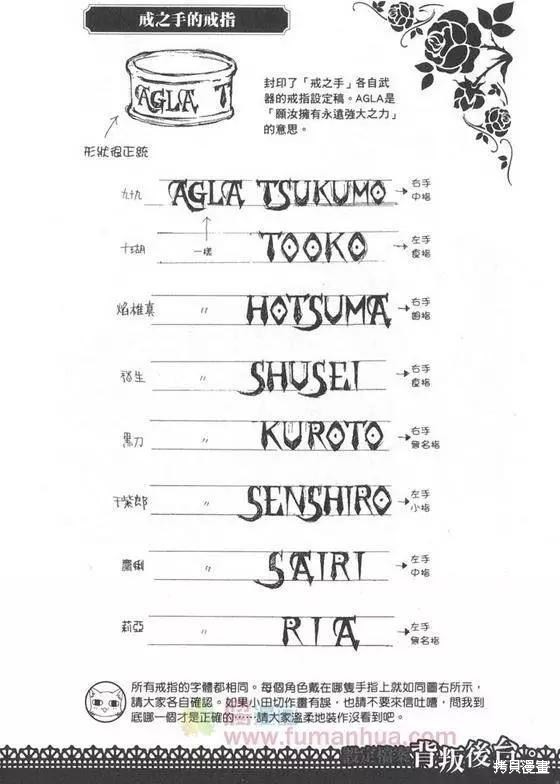 戒之手的戒指
AGLA T
封印了「戒之手」各自武
器的戒指設定稿。AGLA是
「願汝擁有永遠強大之力」
的意思。
形狀很正統
九十九 AGLA TSUKUMO →右手
中指
十瑚 一樣 TOOKO →左手
食指
焰椎真 〃 HOTSUMA →右手
拇指
〃 SHUSEI →右手
食指
黑刀 〃 KUROTO →右手
無名指
千紫郎 〃 SENSHIRO →左手
小指
〃 SAIRI →左手
中指
莉亞 〃 RIA →左手
無名指
所有戒指的字體都相同。每個角色戴在哪隻手指上就如同圖右所示，
請大家各自確認。如果小田切作畫有誤，也請不要來信吐嘈，問我到
底哪一個才是正確的……請大家溫柔地裝作沒看到吧。
www.fumanhua.com
背叛後台
拷貝漫畫